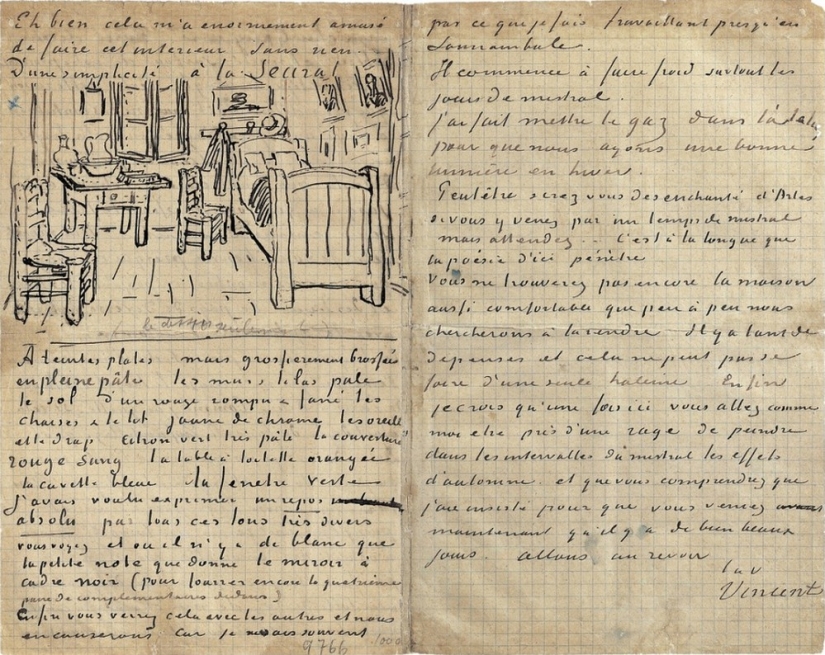 Eh bien cela m'a enormement amusé
de faire cet interieur sans rien.
D'une simplicité à la Seurat
à teintes plates mais grossierement brossée
en pleine pâte les murs lilas pale
le sol d'un rouge rompu & fané les
chaises & le lit jaune de chrome les oreillers
et le drap citron vert très pâle la couverture
rouge sang la table à toilette orangée
la cuvette bleue la fenetre verte
J'avais voulu exprimer un repos
absolu par tous ces tons très divers
vous voyez et ou il n'y a de blanc que
la petite note que donne le miroir à
cadre noir (pour fourrer encore la quatrième
paire de complementaires dedans)
Enfin vous verrez cela avec les autres et nous
en causerons car je ne sais souvent
9766
pas ce que je fais travaillant presqu'en
somnambule.
Il commence à faire froid surtout les
jours de mistral.
J'ai fait mettre le gaz dans l'atelier
pour que nous ayons une bonne
lumière en hiver.
Peutêtre serez vous desenchanté d'Arles
si vous y venez par un temps de mistral
mais attendez .. C'est à la longue que
la poésie d'ici pénètre
Vous ne trouverez pas encore la maison
aussi comfortable que peu à peu nous
chercherons à la rendre Il y a tant de
depenses et cela ne peut pas se
faire d'une seule haleine Enfin
je crois qu'une fois ici vous allez comme
moi etre pris d'une rage de peindre
dans les intervalles du mistral les effets
d'automne. et que vous comprendrez que
j'ai insisté pour que vous venez
maintenant qu'il y a de bien beaux
jours. allons au revoir
t. à v
Vincent